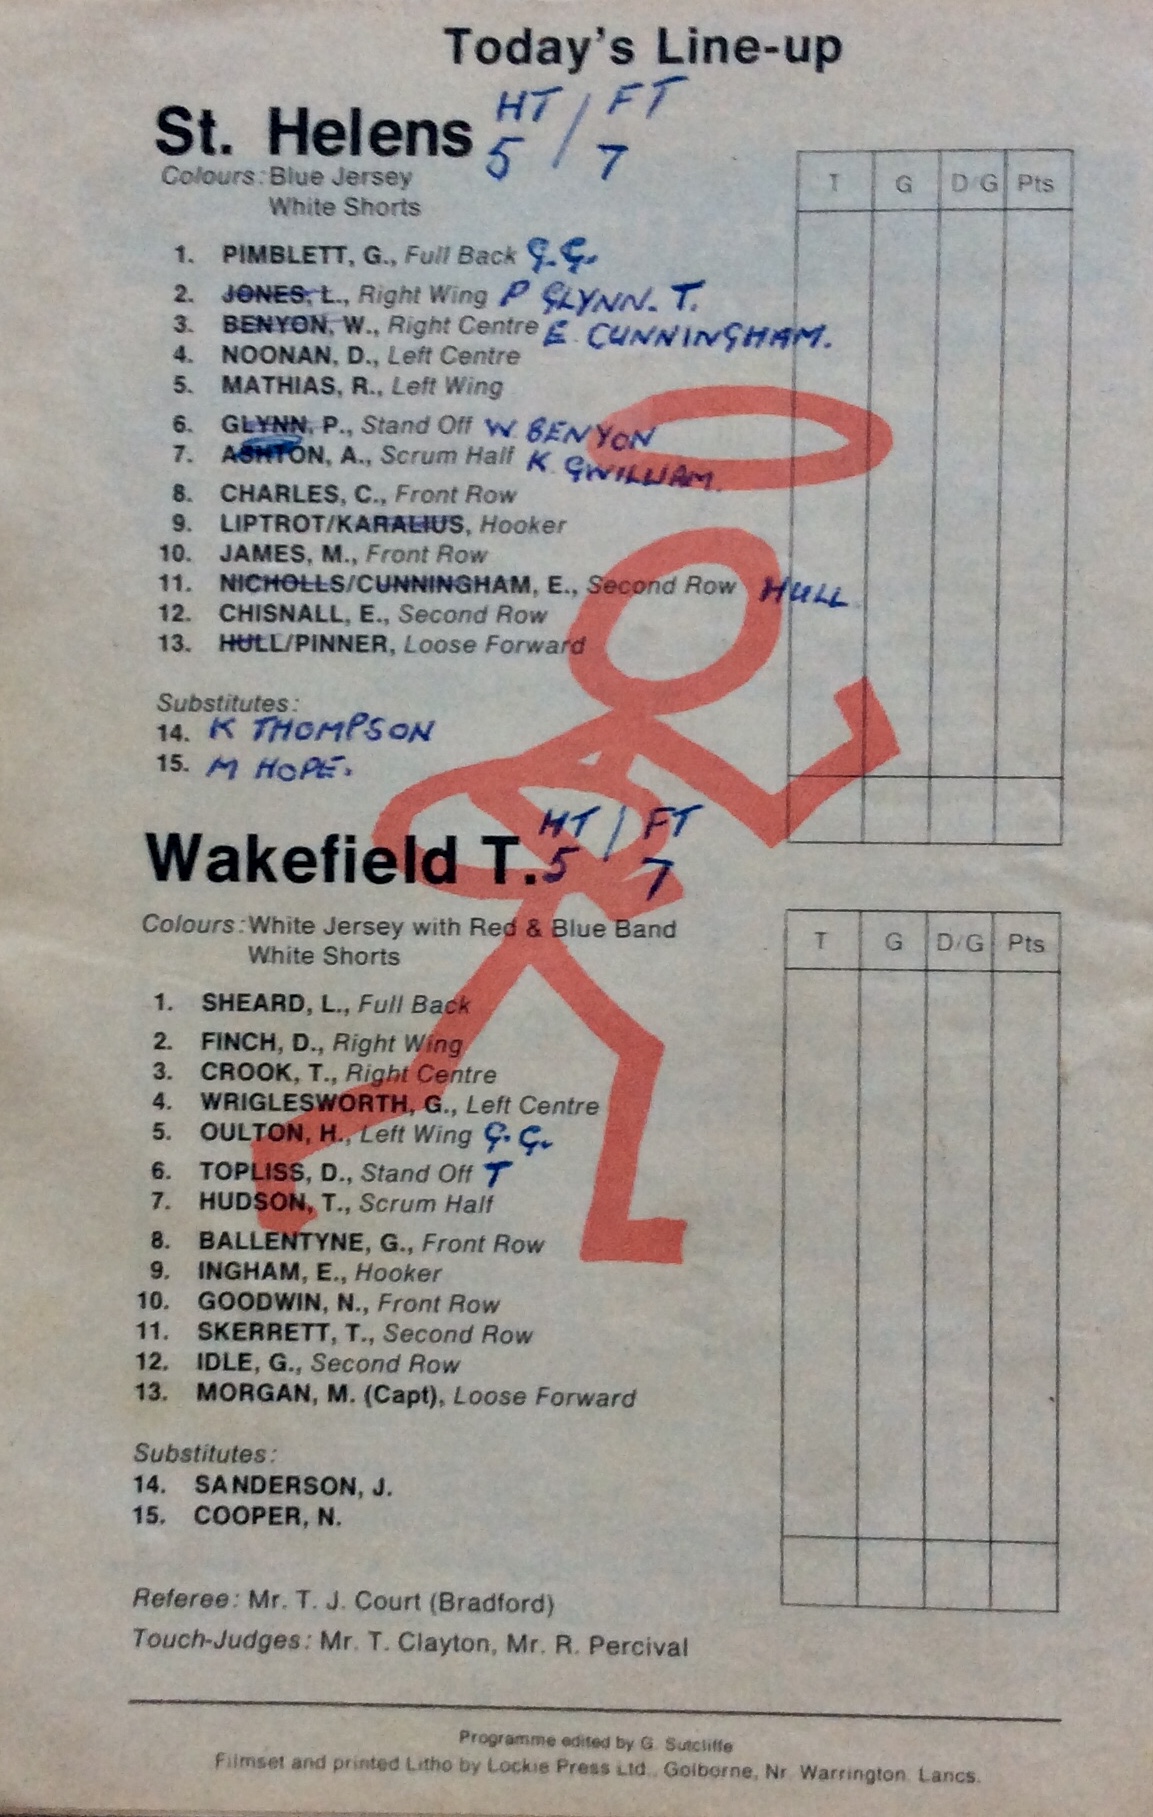 Today's Line-up
St. Helens HT / FT
5 / 7
Colours: Blue Jersey
White Shorts
T G D/G Pts
1. PIMBLETT, G., Full Back G.G.
2. JONES, L., Right Wing P GLYNN. T.
3. BENYON, W., Right Centre E. CUNNINGHAM.
4. NOONAN, D., Left Centre
5. MATHIAS, R., Left Wing
6. GLYNN, P., Stand Off W. BENYON
7. ASHTON, A., Scrum Half K GWILLIAM.
8. CHARLES, C., Front Row
9. LIPTROT/KARALIUS, Hooker
10. JAMES, M., Front Row
11. NICHOLLS/CUNNINGHAM, E., Second Row HULL
12. CHISNALL, E., Second Row
13. HULL/PINNER, Loose Forward
Substitutes:
14. K THOMPSON
15. M HOPE.
Wakefield T. HT / FT
5 / 7
Colours: White Jersey with Red & Blue Band
White Shorts
T G D/G Pts
1. SHEARD, L., Full Back
2. FINCH, D., Right Wing
3. CROOK, T., Right Centre
4. WRIGLESWORTH, G., Left Centre
5. OULTON, H., Left Wing G.G.
6. TOPLISS, D., Stand Off T
7. HUDSON, T., Scrum Half
8. BALLENTYNE, G., Front Row
9. INGHAM, E., Hooker
10. GOODWIN, N., Front Row
11. SKERRETT, T., Second Row
12. IDLE, G., Second Row
13. MORGAN, M. (Capt), Loose Forward
Substitutes:
14. SANDERSON, J.
15. COOPER, N.
Referee: Mr. T. J. Court (Bradford)
Touch-Judges: Mr. T. Clayton, Mr. R. Percival
Programme edited by G. Sutcliffe
Filmset and printed Litho by Lockie Press Ltd., Golborne, Nr. Warrington. Lancs.